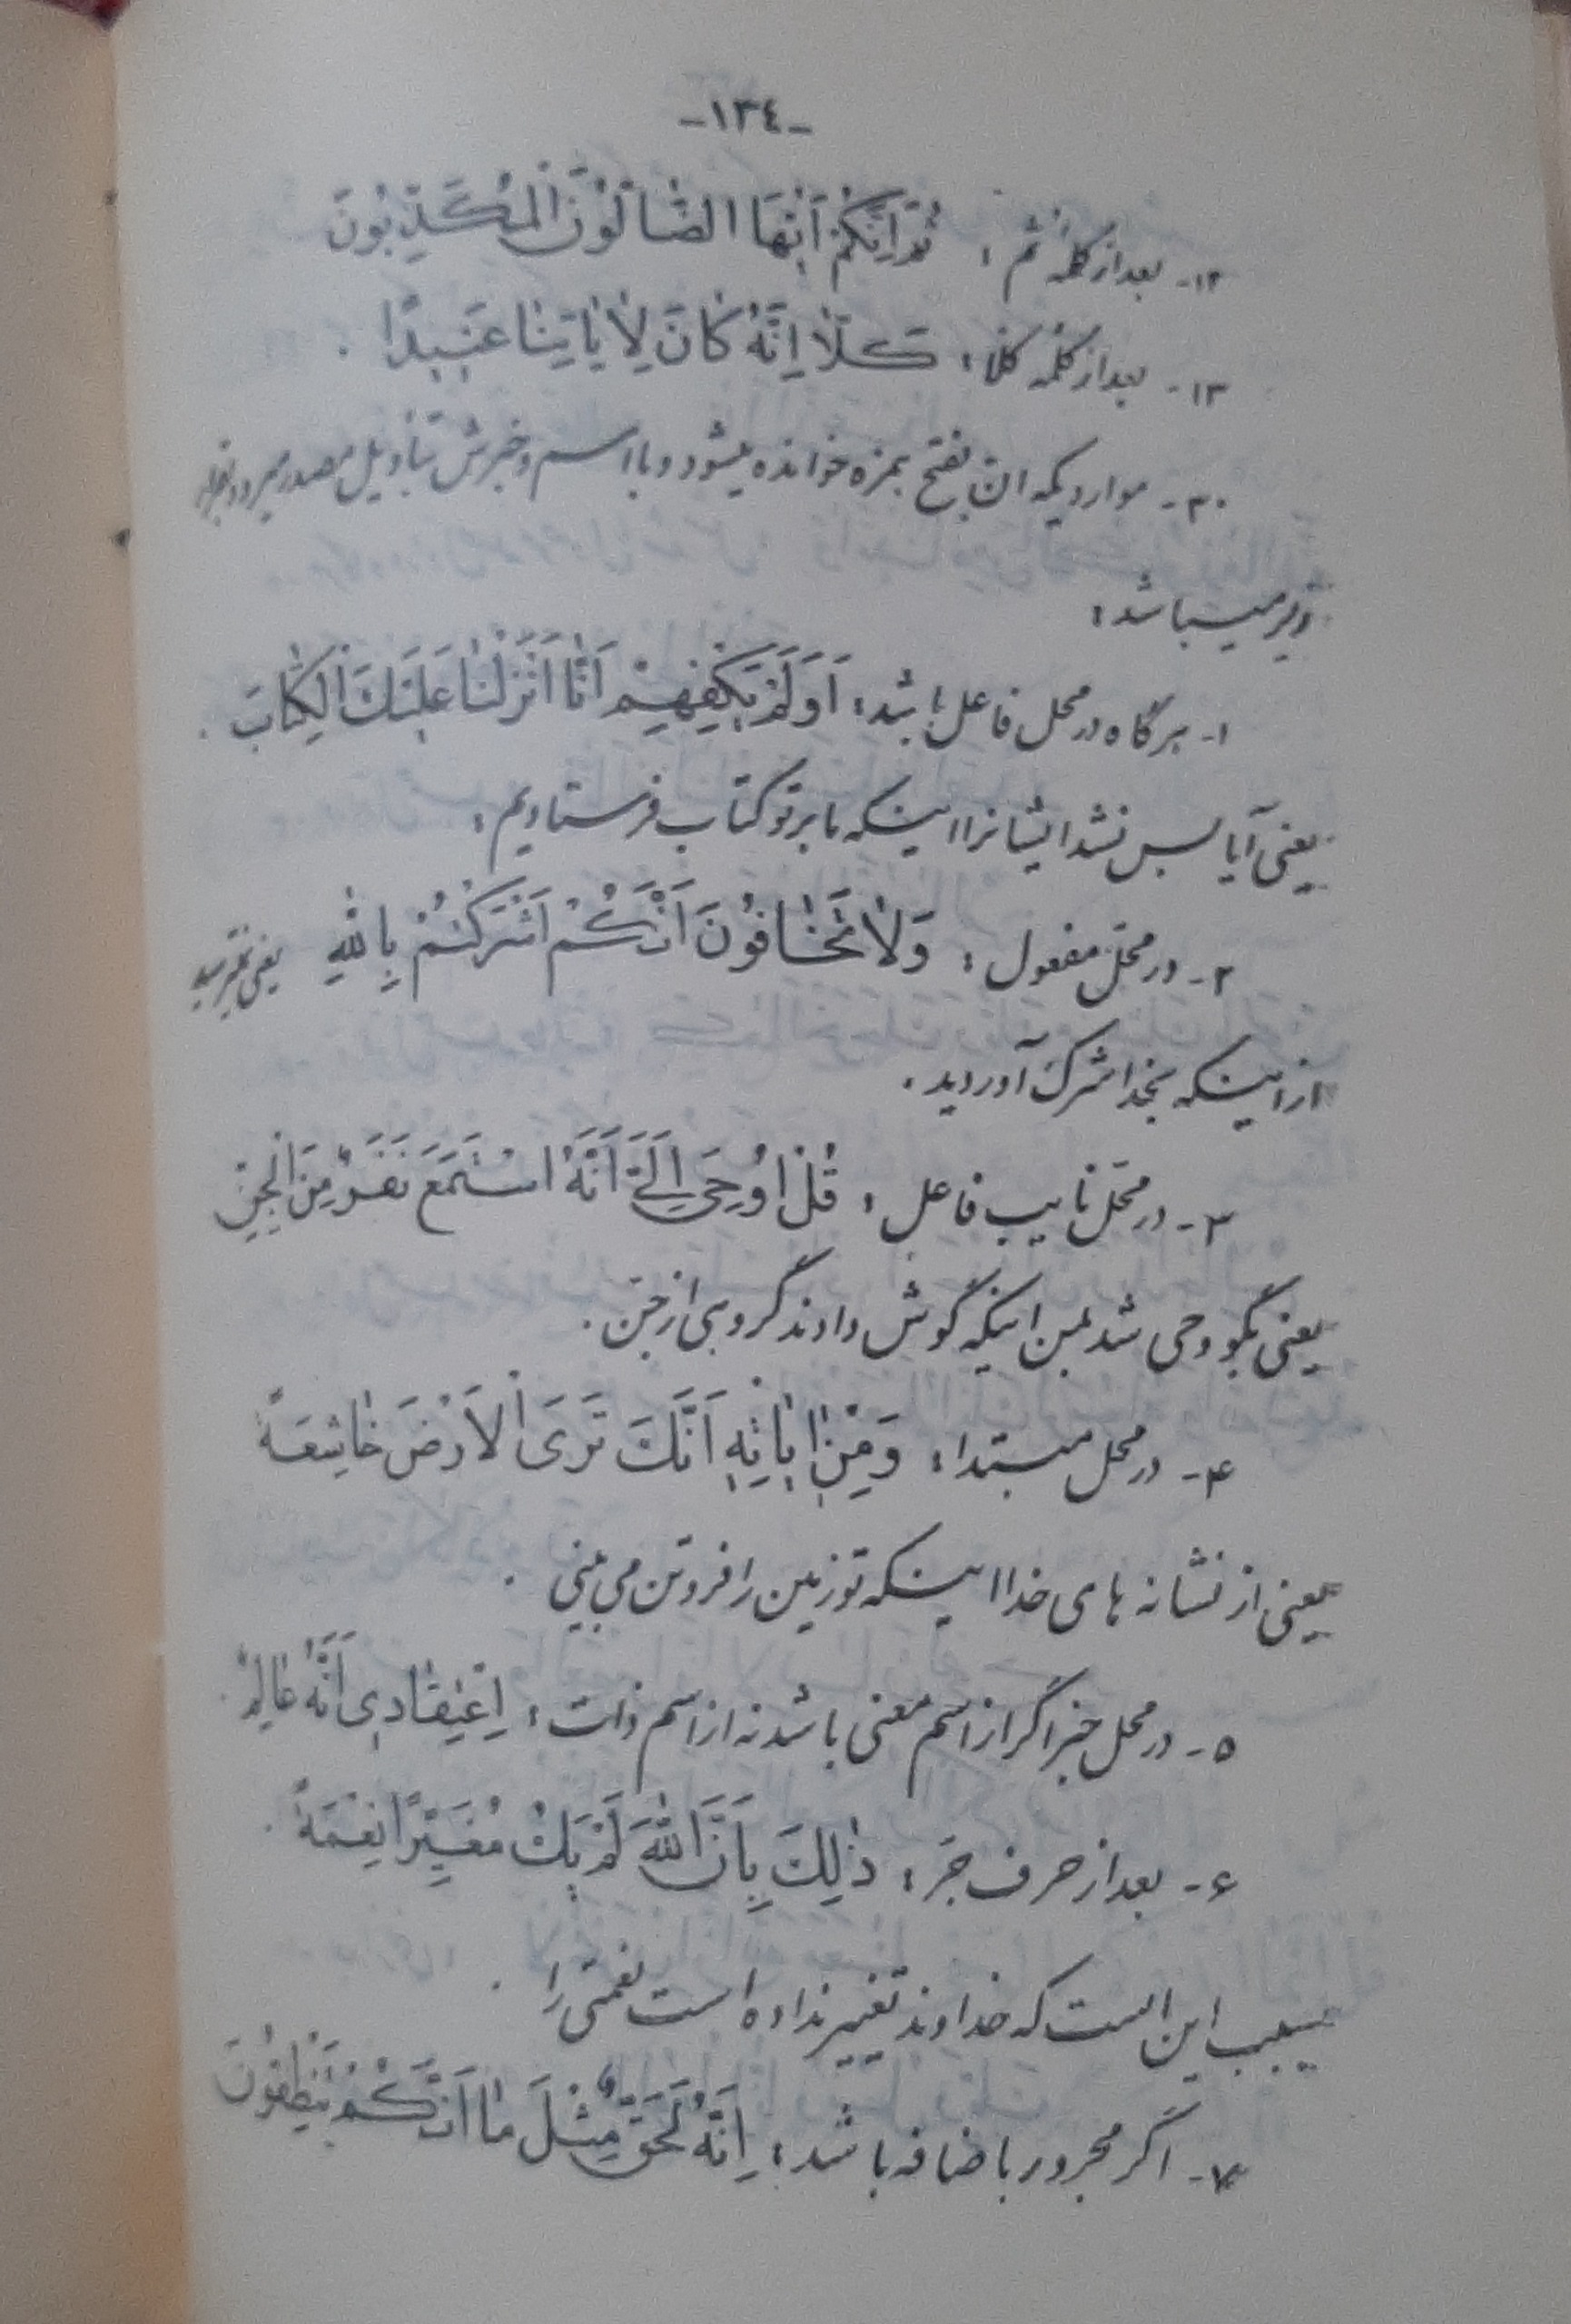 -١٣٤-
١٢- بعد از کلمه ثم : ثُمَّ اِنَّكُمْ اَيُّهَا الضّٰالُّونَ الْمُكَذِّبُونَ
١٣- بعد از کلمه کلا : كَلّٰا اِنَّهُ كٰانَ لِاٰيٰاتِنٰا عَنيٖدًا .
٣٠- مواردیکه انّ بفتح همزه خوانده میشود و با اسم و خبرش بتأویل مصدر میرود
میباشد :
١- هرگاه در محل فاعل باشد : اَوَلَمْ يَكْفِهِمْ اَنّٰا اَنْزَلْنٰا عَلَيْكَ الْكِتٰابَ .
یعنی آیا بس نشد ایشانرا اینکه ما بر تو کتاب فرستادیم :
٢- در محلّ مفعول : وَلاٰ تَخٰافُونَ اَنَّكُمْ اَشْرَكْتُمْ بِاللهِ یعنی نمیترسید
از اینکه بخدا شرک آوردید .
٣- در محلّ نایب فاعل : قُلْ اُوحِىَ اِلَىَّ اَنَّهُ اسْتَمَعَ نَفَرٌ مِنَ الْجِنِّ
یعنی بگو وحی شد بمن اینکه گوش دادند گروهی از جنّ .
۴- در محل مبتدا : وَ مِنْ اٰيٰاتِهٖ اَنَّكَ تَرَى الْاَرْضَ خٰاشِعَةً
یعنی از نشانه های خدا اینکه تو زمین را فروتن می بینی .
۵- در محل خبر اگر از اسم معنی باشد نه از اسم ذات : اِعْتِقٰادٖى اَنَّهُ عٰالِمٌ .
۶- بعد از حرف جرّ : ذٰلِكَ بِاَنَّ اللهَ لَمْ يَكُ مُغَيِّرًا نِعْمَةً .
بسبب این است که خداوند تغییر نداده است نعمتی را .
٧- اگر مجرور باضافه باشد : اِنَّهُ لَحَقٌّ مِثْلَ مٰا اَنَّكُمْ تَنْطِقُونَ